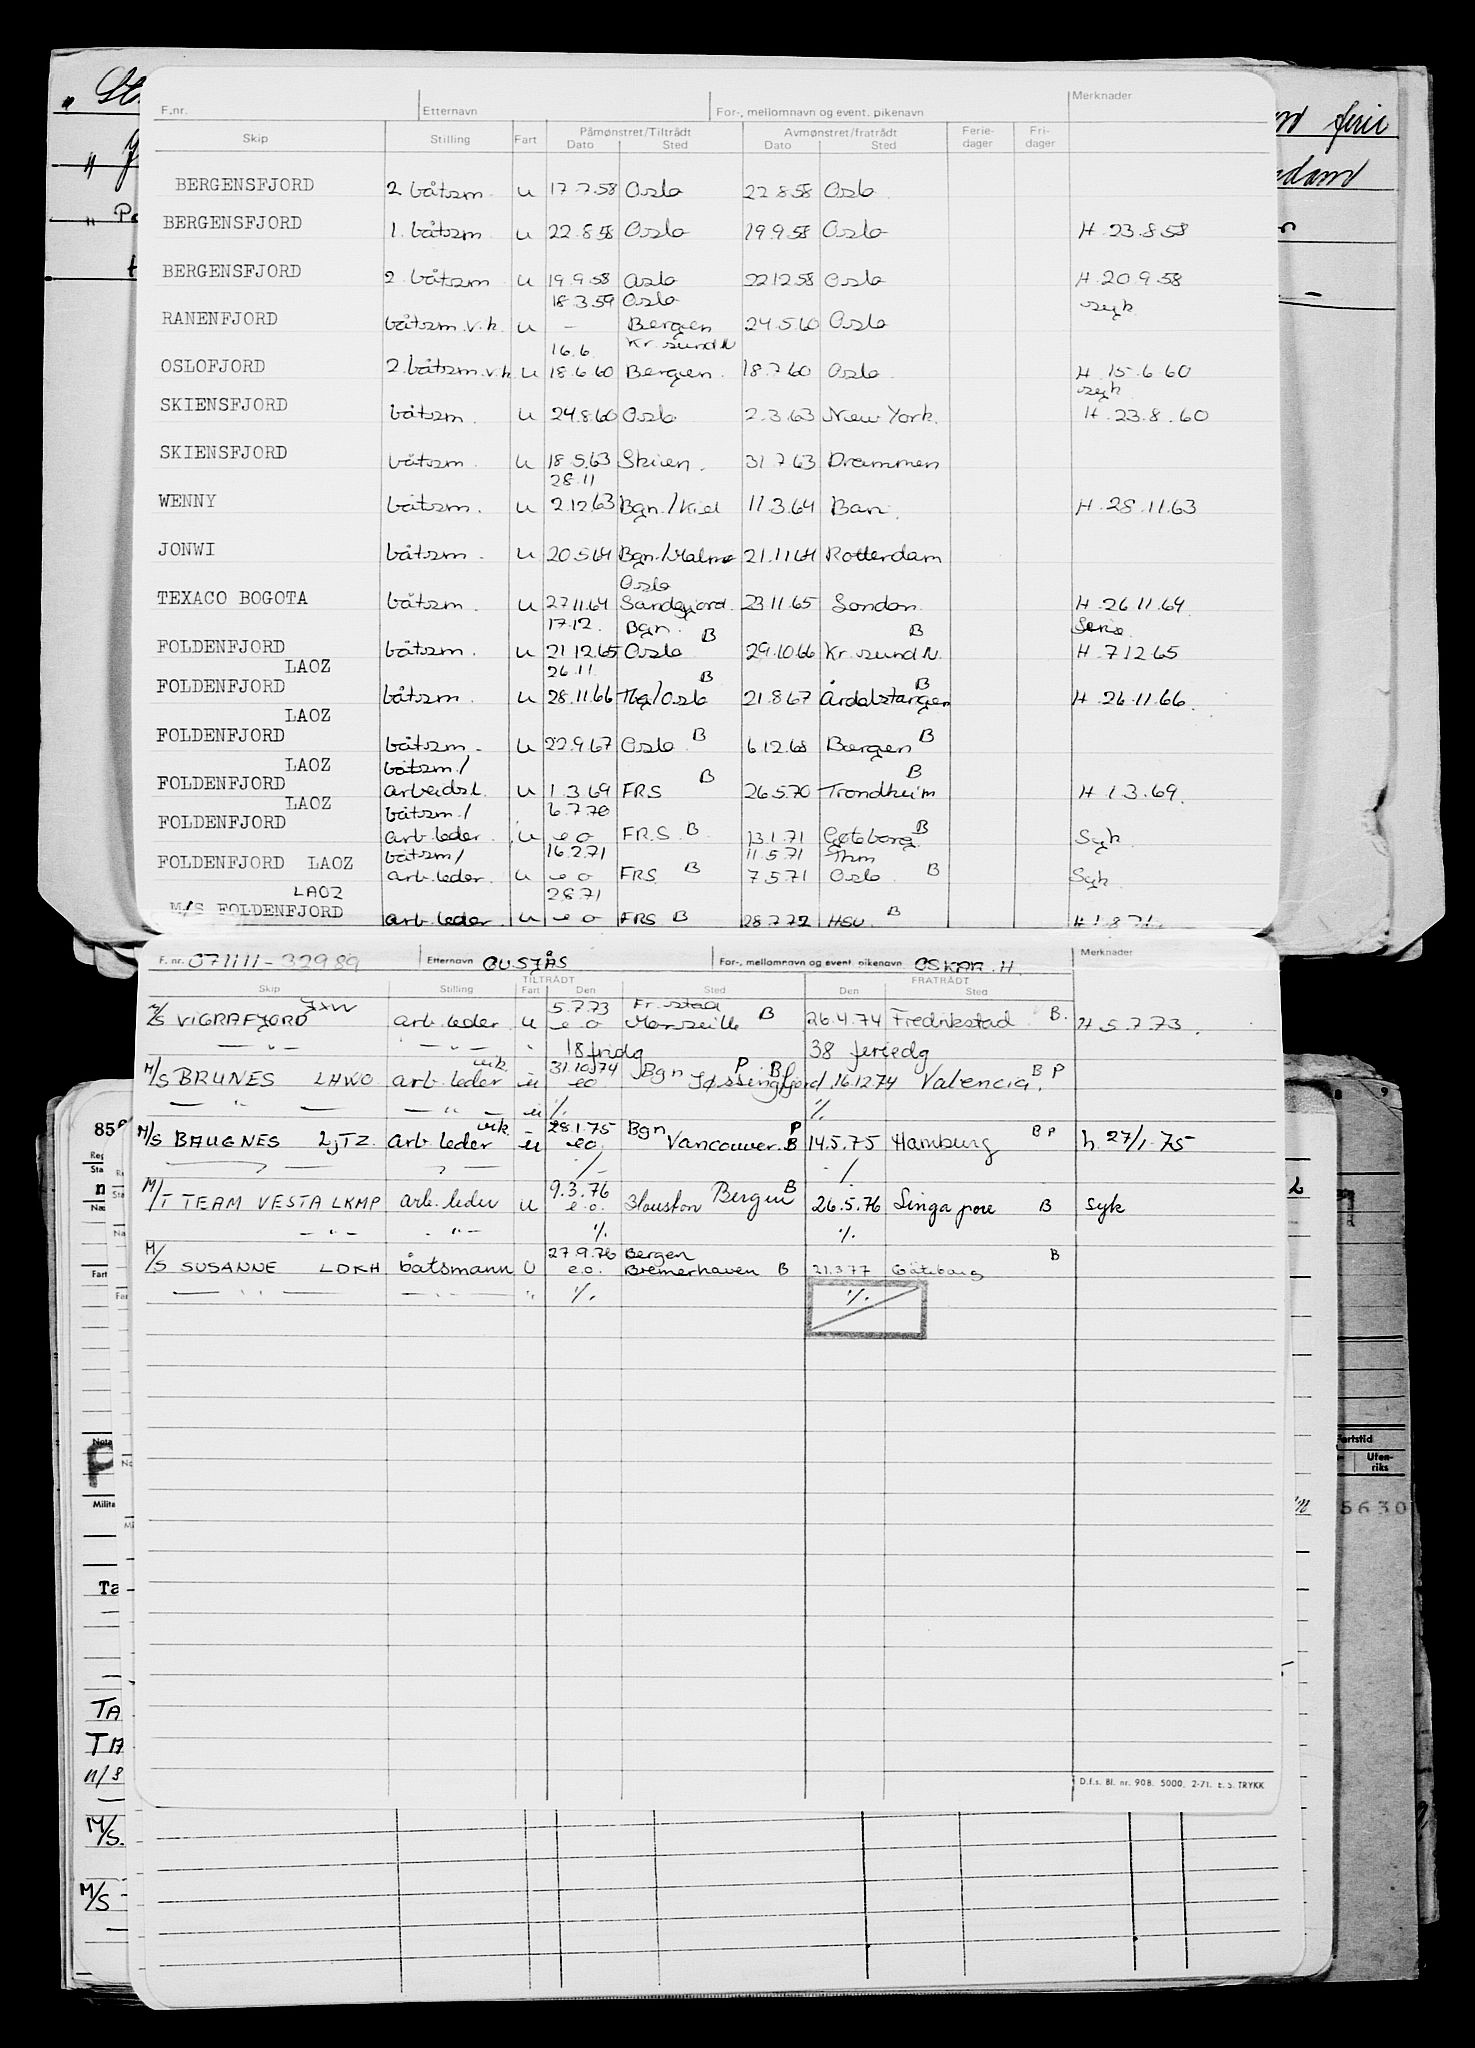 F.nr. Etternavn For-, mellomnavn og event. pikenavn Merknader
Skip Stilling Fart Påmønstret/Tiltrådt Avmønstret/fratrådt Ferie- Fri-
Dato Sted Dato Sted dager dager
BERGENSFJORD 2 båtsm. u 17.7.58 Oslo 22.8.58 Oslo
BERGENSFJORD 1. båtsm. u 22.8.58 Oslo 19.9.58 Oslo H. 23.8.58
BERGENSFJORD 2. båtsm u 19.9.58 Oslo 22.12.58 Oslo H. 20.9.58
18.3.59 Oslo syk.
RANENFJORD båtsm.v.k. u - Bergen 24.5.60 Oslo
16.6. Kr.sund N
OSLOFJORD 2.båtsm.v.k. u 18.6.60 Bergen. 18.7.60 Oslo. H. 15.6.60
syk.
SKIENSFJORD båtsm. u 24.8.60 Oslo 2.3.63 New York. H. 23.8.60
SKIENSFJORD båtsm. u 18.5.63 Skien. 31.7.63 Drammen
28.11
WENNY båtsm. u 2.12.63 Bgn./Kiel 11.3.64 Ban. H. 28.11.63
JONWI båtsm. u 20.5.64 Bgn./Malmø 21.11.64 Rotterdam
Oslo
TEXACO BOGOTA båtsm. u 27.11.64 Sandefjord. 23.11.65 London. H. 26.11.64.
17.12. Bgn. B B
FOLDENFJORD båtsm. u 21.12.65 Oslo 29.10.66 Kr.sund N. H. 7.12.65
LAOZ 26.11. B B
FOLDENFJORD båtsm. u 28.11.66 Tbg/Oslo 21.8.67 Årdalstangen H. 26.11.66.
LAOZ
FOLDENFJORD båtsm. u 22.9.67 Oslo B 6.12.68 Bergen B
LAOZ båtsm./ B B
FOLDENFJORD arbeidsl. u 1.3.69 FRS 26.5.70 Trondheim H. 1.3.69.
LAOZ båtsm./ 6.7.70
FOLDENFJORD arb.leder. u e o FR.S. B 13.1.71 Gøteborg B Syk.
båtsm/ 16.2.71 11.5.71 Thm
FOLDENFJORD LAOZ arb.leder. u e o FRS. B 7.5.71 Oslo. B Syk.
LAOZ 2.8.71
M/S FOLDENFJORD arb.leder. u e o FRS B 28.7.72 HSU. B H 1.8.71.
F. nr. 071111-32989 Etternavn GUSJÅS For-, mellomnavn og event. pikenavn OSKAR H. Merknader
TILTRÅDT FRATRÅDT
Skip Stilling Fart Den Sted Den Sted
JXVV 5.7.73 Fr.stad
M/S VIGRAFJORD arb.leder u e o Marseille B 26.4.74 Fredrikstad B. H 5.7.73.
— " — — " — " 18 fridg 38 feriedg
vik. 31.10.74 P B B P
M/S BRUNES LHWO arb.leder u eo Bgn Jøssingfjord 16.12.74 Valencia.
— " — — " — u %. %.
vik. 28.1.75 Bgn P B P
M/S BAUGNES LJTZ. arb.leder u eo Vancouver. B 14.5.75 Hamburg h. 27/1-75
— " — — " — %. %.
9.3.76 B
M/T TEAM VESTA LKMP arb.leder u e.o. Houston Bergen 26.5.76 Singapore B Syk
— " — — " — %. %.
27.9.76 Bergen B
M/S SUSANNE LDKH båtsmann U e.o. Bremerhaven B 21.3.77 Göteborg
— " — — " — " %. %.
D.f.s. Bl. nr. 908. 5000. 2-71. E.S. TRYKK
ferie
Fart
Milita
Ta
TA
M/S.
M/S
8 9
Fartstid
Uten-
riks
5630